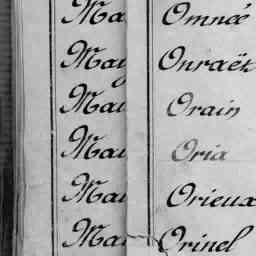 Ma Omnée
May Onraët
Mau Orain
Mau Oria
Mau Orieux
Mau Orinel